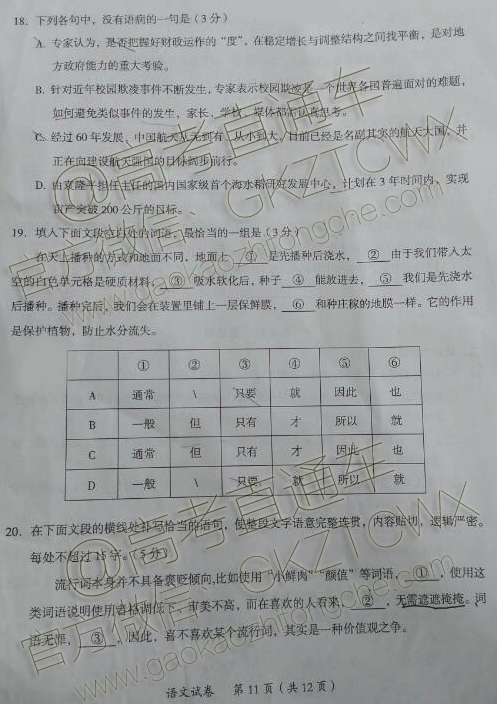 18. 下列各句中，没有语病的一句是（3分）
A. 专家认为，是否把握好财政运作的“度”，在稳定增长与调整结构之间找平衡，是对地
方政府能力的重大考验。
B. 针对近年校园欺凌事件不断发生，专家表示校园欺凌是一个世界各国普遍面对的难题，
如何避免类似事件的发生，家长、学校、媒体都需认真思考。
C. 经过60年发展，中国航天从无到有、从小到大，目前已经是名副其实的航天大国，并
正在向建设航天强国的目标阔步前行。
D. 由袁隆平担任主任的国内国家级首个海水稻研究发展中心，计划在3年时间内，实现
亩产突破200公斤的目标。
19. 填入下面文段空白处的词语，最恰当的一组是（3分）
在天上播种的方式和地面不同，地面上 ① 是先播种后浇水， ② 由于我们带入太
空的白色单元格是硬质材料， ③ 吸水软化后，种子 ④ 能放进去， ⑤ 我们是先浇水
后播种。播种完后，我们会在装置里铺上一层保鲜膜， ⑥ 和种庄稼的地膜一样。它的作用
是保护植物，防止水分流失。
① ② ③ ④ ⑤ ⑥
A 通常 \ 只要 就 因此 也
B 一般 但 只有 才 所以 就
C 通常 但 只有 才 因此 也
D 一般 \ 只要 就 所以 就
20. 在下面文段的横线处补写恰当的语句，使整段文字语意完整连贯，内容贴切，逻辑严密。
每处不超过15字。（5分）
流行词本身并不具备褒贬倾向，比如使用“小鲜肉”“颜值”等词语， ① ，使用这
类词语说明使用者格调低下、审美不高，而在喜欢的人看来， ② ，无需遮遮掩掩。词
语无罪， ③ 。因此，喜不喜欢某个流行词，其实是一种价值观之争。
语文试卷 第11页（共12页）
@高考直通车
官方微信：GKZTCWX
www.gaokaozhitongche.com
@高考直通车
官方微信：GKZTCWX
www.gaokaozhitongche.com